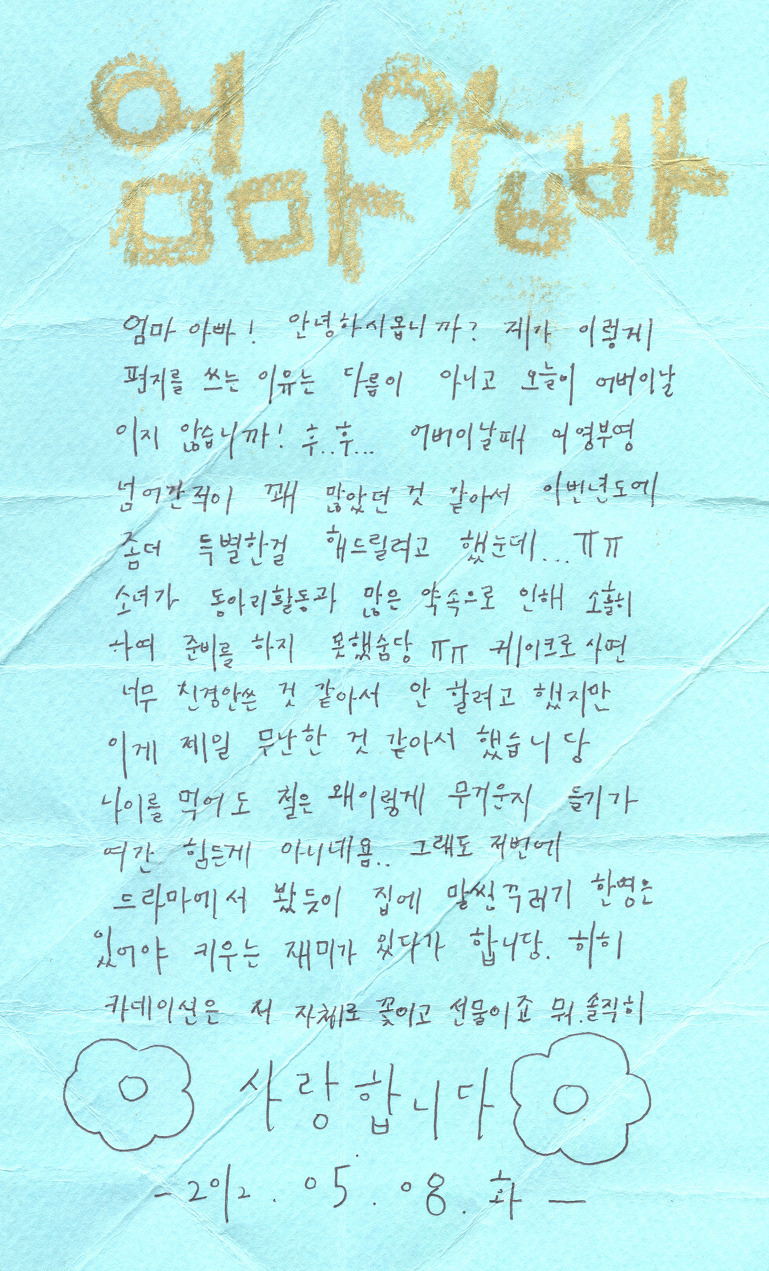 엄마아빠
엄마 아빠! 안녕하시옵니까? 제가 이렇게
편지를 쓰는 이유는 다름이 아니고 오늘이 어버이날
이지 않습니까! 후..후... 어버이날때 어영부영
넘어간적이 꽤 많았던 것 같아서 이번년도에
좀더 특별한걸 해드릴려고 했눈데... ㅠㅠ
소녀가 동아리활동과 많은 약속으로 인해 소홀히
하여 준비를 하지 못했숨당 ㅠㅠ 케이크로 사면
너무 신경안쓴 것 같아서 안 할려고 했지만
이게 제일 무난한 것 같아서 했습니당
나이를 먹어도 철은 왜이렇게 무거운지 들기가
여간 힘든게 아니네욤.. 그래도 저번에
드라마에서 봤듯이 집에 말썽꾸러기 한명은
있어야 키우는 재미가 있다가 합니당. 히히
카네이션은 저 자체로 꽃이고 선물이죠 뭐. 솔직히
사랑합니다
- 2012. 05. 08. 화 -